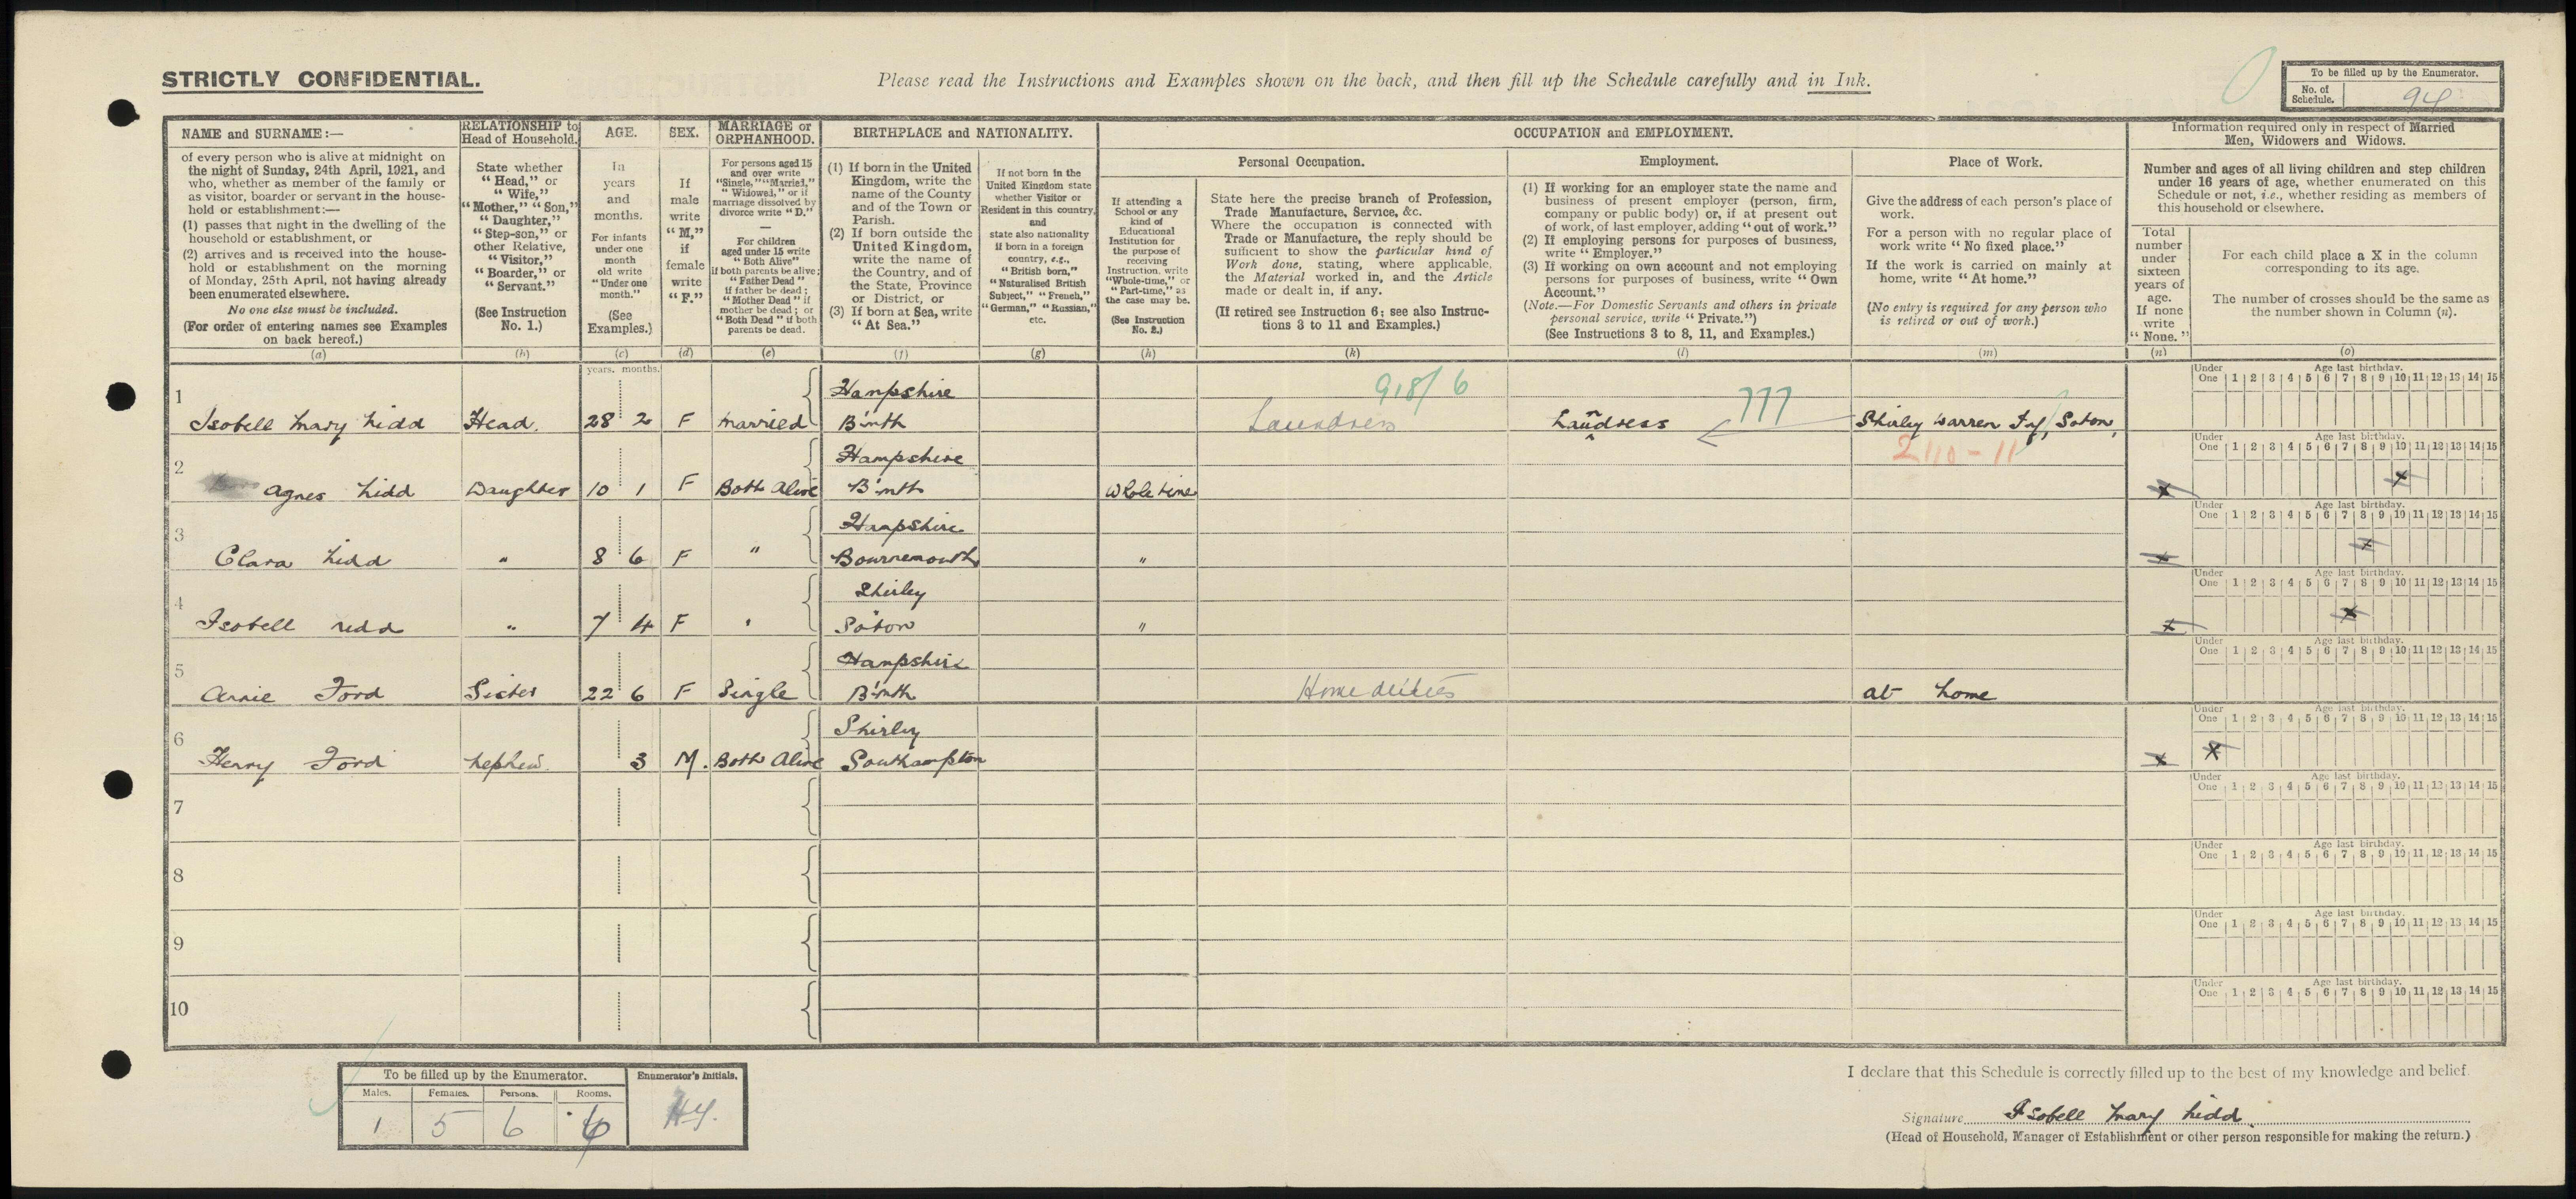 STRICTLY CONFIDENTIAL.
Please read the Instructions and Examples shown on the back, and then fill up the Schedule carefully and in Ink.
To be filled up by the Enumerator.
No. of Schedule. 94
NAME and SURNAME:—
of every person who is alive at midnight on
the night of Sunday, 24th April, 1921, and
who, whether as member of the family or
as visitor, boarder or servant in the house-
hold or establishment:—
(1) passes that night in the dwelling of the
household or establishment, or
(2) arrives and is received into the house-
hold or establishment on the morning
of Monday, 25th April, not having already
been enumerated elsewhere.
No one else must be included.
(For order of entering names see Examples
on back hereof.)
(a)
RELATIONSHIP to
Head of Household.
State whether
"Head," or
"Wife,"
"Mother," "Son,"
"Daughter,"
"Step-son," or
other Relative,
"Visitor,"
"Boarder," or
"Servant."
(See Instruction
No. 1.)
(b)
AGE.
In
years
and
months.
For infants
under one
month
old write
"Under one
month."
(See
Examples.)
(c)
SEX.
If
male
write
"M,"
if
female
write
"F."
(d)
MARRIAGE or
ORPHANHOOD.
For persons aged 15
and over write
"Single," "Married,"
"Widowed," or if
marriage dissolved by
divorce write "D."
For children
aged under 15 write
"Both Alive"
if both parents be alive;
"Father Dead"
if father be dead;
"Mother Dead" if
mother be dead; or
"Both Dead" if both
parents be dead.
(e)
BIRTHPLACE and NATIONALITY.
(1) If born in the United
Kingdom, write the
name of the County
and of the Town or
Parish.
(2) If born outside the
United Kingdom,
write the name of
the Country, and of
the State, Province
or District, or
(3) If born at Sea, write
"At Sea."
(f)
If not born in the
United Kingdom state
whether Visitor or
Resident in this country,
and
state also nationality
if born in a foreign
country, e.g.,
"British born,"
"Naturalised British
Subject," "French,"
"German," "Russian,"
etc.
(g)
OCCUPATION and EMPLOYMENT.
If attending a
School or any
kind of
Educational
Institution for
the purpose of
receiving
Instruction, write
"Whole-time," or
"Part-time," as
the case may be.
(See Instruction
No. 2.)
(h)
Personal Occupation.
State here the precise branch of Profession,
Trade Manufacture, Service, &c.
Where the occupation is connected with
Trade or Manufacture, the reply should be
sufficient to show the particular kind of
Work done, stating, where applicable,
the Material worked in, and the Article
made or dealt in, if any.
(If retired see Instruction 6; see also Instruc-
tions 3 to 11 and Examples.)
(k)
Employment.
(1) If working for an employer state the name and
business of present employer (person, firm,
company or public body) or, if at present out
of work, of last employer, adding "out of work."
(2) If employing persons for purposes of business,
write "Employer."
(3) If working on own account and not employing
persons for purposes of business, write "Own
Account."
(Note.—For Domestic Servants and others in private
personal service, write "Private.")
(See Instructions 3 to 8, 11, and Examples.)
(l)
Place of Work.
Give the address of each person's place of
work.
For a person with no regular place of
work write "No fixed place."
If the work is carried on mainly at
home, write "At home."
(No entry is required for any person who
is retired or out of work.)
(m)
Information required only in respect of Married
Men, Widowers and Widows.
Number and ages of all living children and step children
under 16 years of age, whether enumerated on this
Schedule or not, i.e., whether residing as members of
this household or elsewhere.
Total
number
under
sixteen
years of
age.
If none
write
"None."
(n)
For each child place a X in the column
corresponding to its age.
The number of crosses should be the same as
the number shown in Column (n).
(o)
years. months.
Under One Age last birthday. 1 2 3 4 5 6 7 8 9 10 11 12 13 14 15
1 Isobell Mary Kidd Head. 28 2 F Married Hampshire B'mth Laundress 918/6 Laundress 777 Shirley Warren Soton,
2110-11
Under One Age last birthday. 1 2 3 4 5 6 7 8 9 10 11 12 13 14 15
2 Agnes Kidd Daughter 10 1 F Both Alive Hampshire B'mth Whole time x x
Under One Age last birthday. 1 2 3 4 5 6 7 8 9 10 11 12 13 14 15
3 Clara Kidd " 8 6 F " Hampshire Bournemouth " x x
Under One Age last birthday. 1 2 3 4 5 6 7 8 9 10 11 12 13 14 15
4 Isobell Kidd " 7 4 F " Shirley Soton " x x
Under One Age last birthday. 1 2 3 4 5 6 7 8 9 10 11 12 13 14 15
5 Annie Ford Sister 22 6 F Single Hampshire B'mth Home duties at home
Under One Age last birthday. 1 2 3 4 5 6 7 8 9 10 11 12 13 14 15
6 Henry Ford nephew. 3 M. Both Alive Shirley Southampton x x
Under One Age last birthday. 1 2 3 4 5 6 7 8 9 10 11 12 13 14 15
7
Under One Age last birthday. 1 2 3 4 5 6 7 8 9 10 11 12 13 14 15
8
Under One Age last birthday. 1 2 3 4 5 6 7 8 9 10 11 12 13 14 15
9
Under One Age last birthday. 1 2 3 4 5 6 7 8 9 10 11 12 13 14 15
10
To be filled up by the Enumerator.
Males. Females. Persons. Rooms.
1 5 6
Enumerator's Initials.
I declare that this Schedule is correctly filled up to the best of my knowledge and belief.
Signature Isobell Mary Kidd
(Head of Household, Manager of Establishment or other person responsible for making the return.)